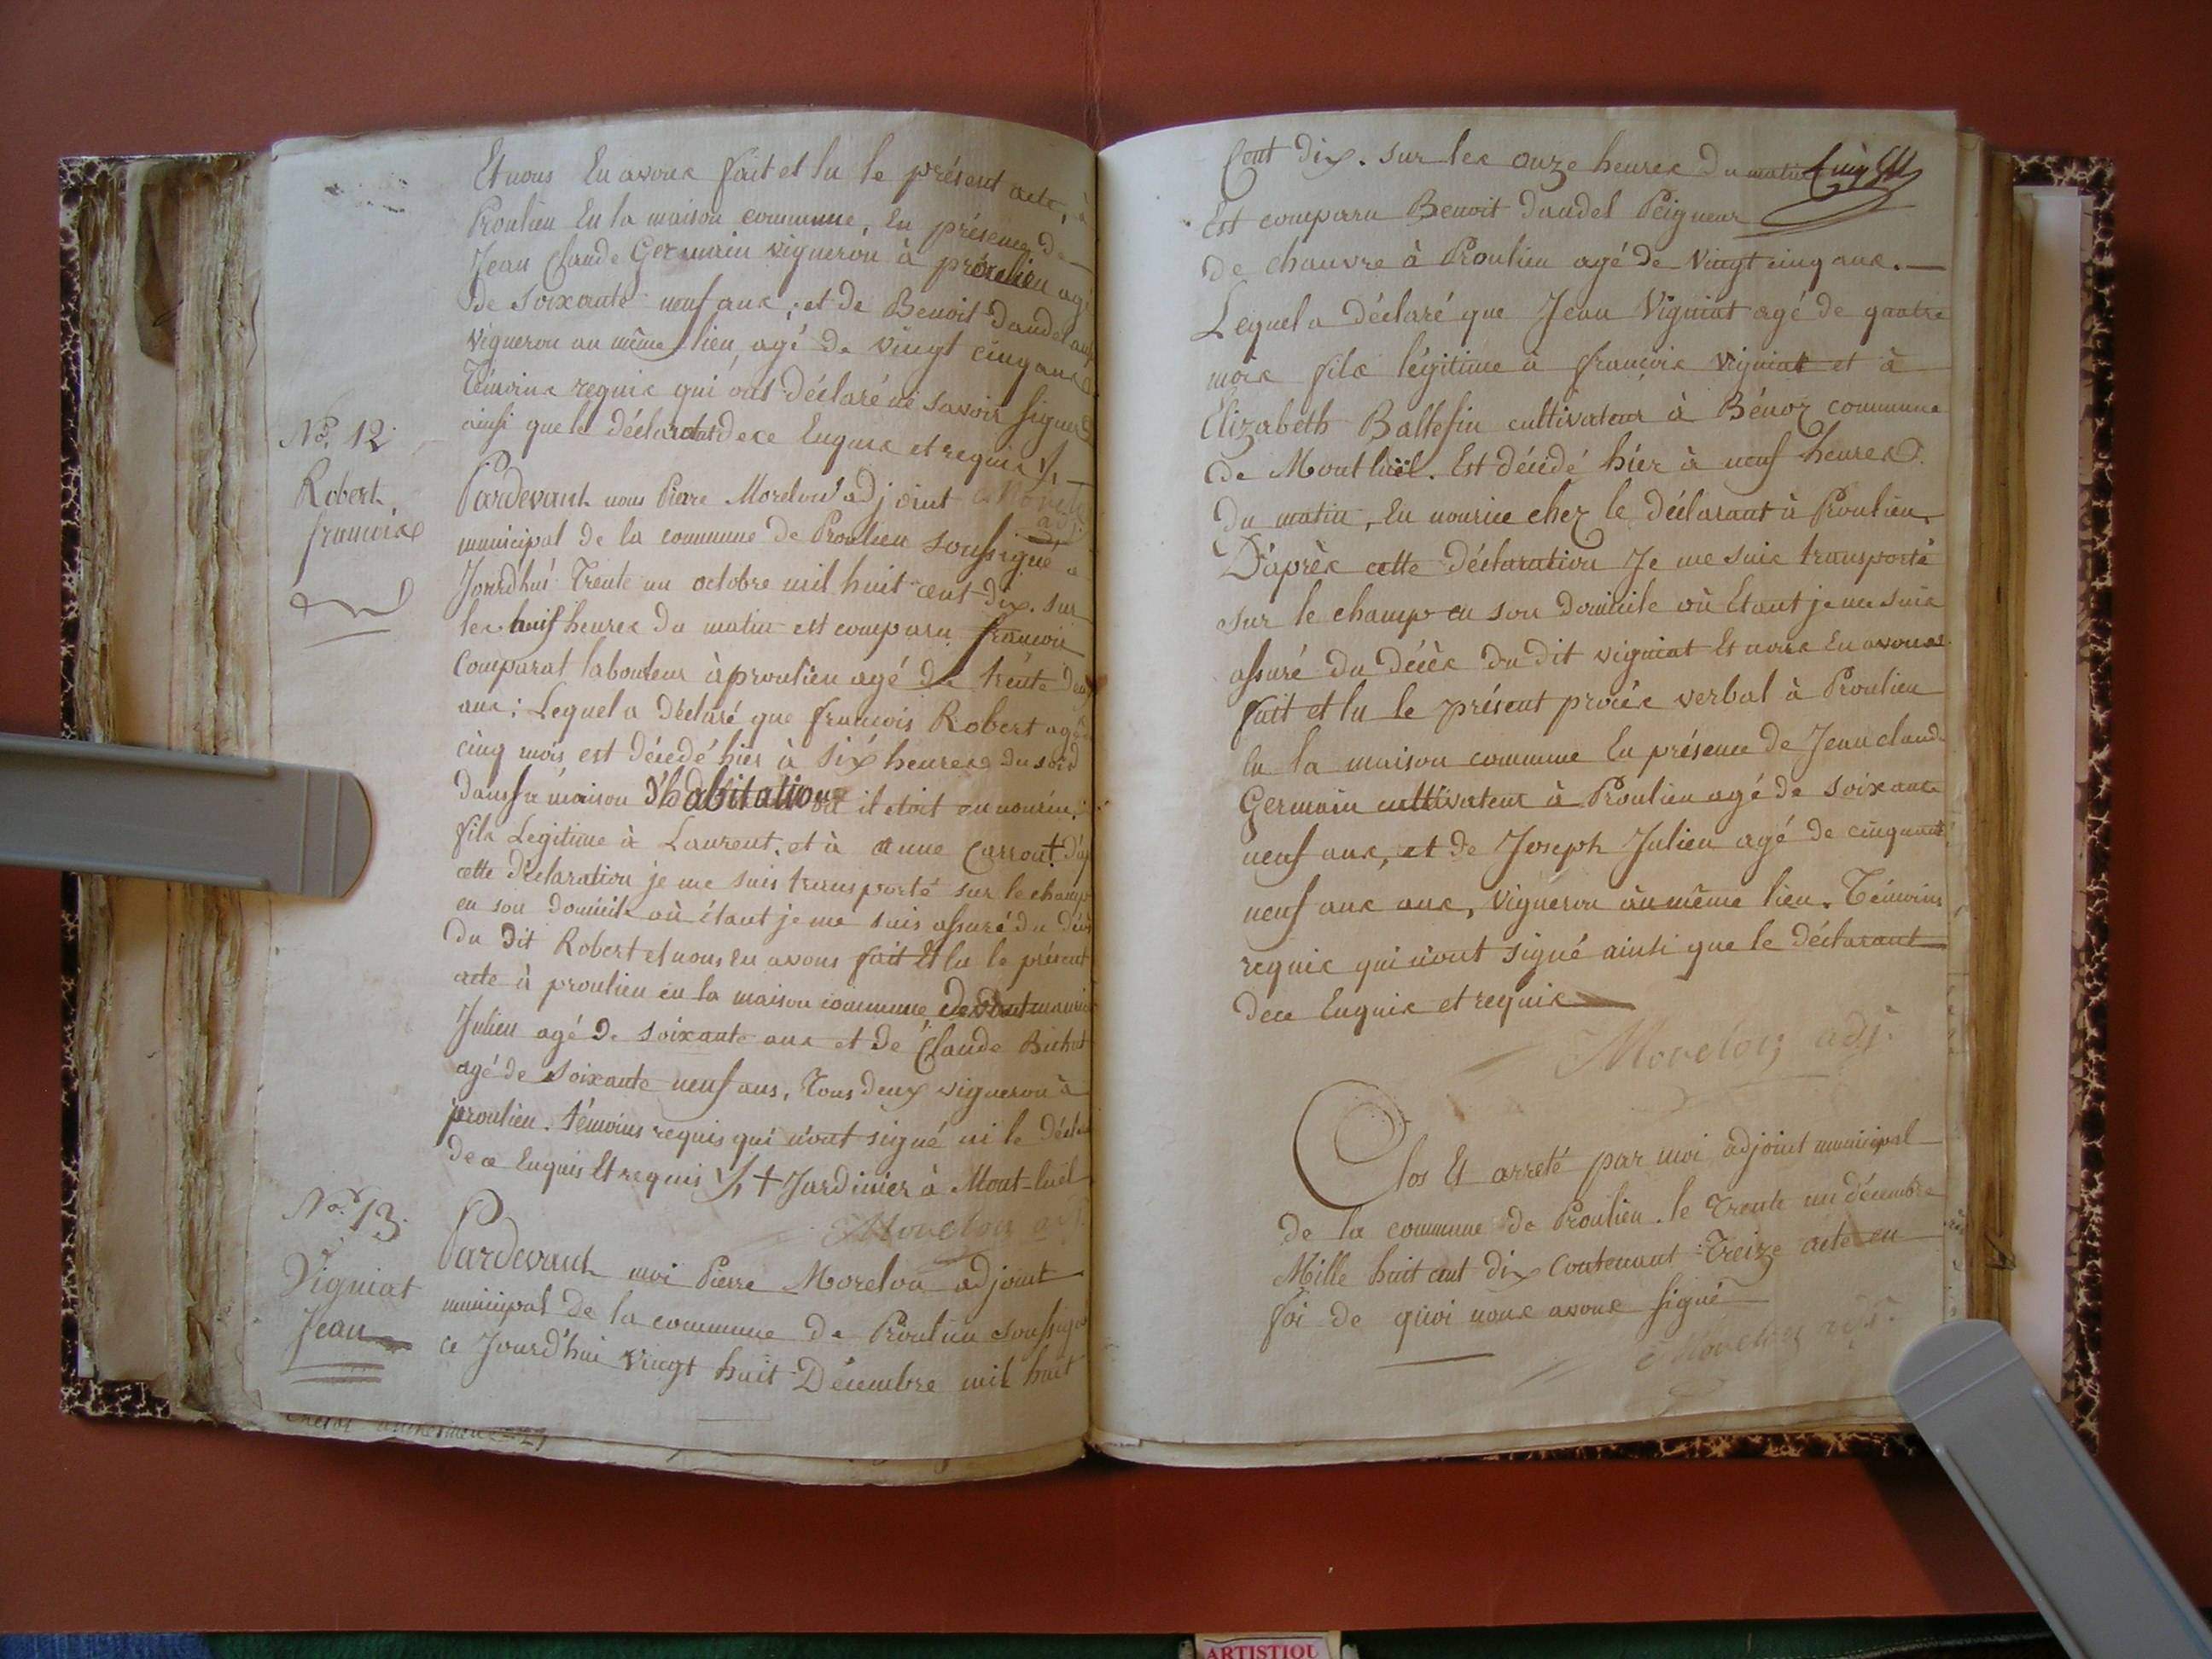 Et nous En avons fait et lu le présent acte, à
Proulieu En la maison commune, En présence de
Jean Claude Germain vigneron à proulieu agé
de soixante neuf ans; et de Benoit Daudel aussi
vigneron au même lieu, agé de vingt cinq ans
Témoins requis qui ont déclaré ne savoir signer
ainsi que le déclarant de ce Enquis et requis
Morelon adj.
No. 12
Robert
francois
Pardevant nous Pierre Morelon adjoint
municipal de la commune de Proulieu soussigné
Jourd'hui Trente un octobre mil huit cent dix. sur
les huit heures du matin est comparu francois
Comparat laboureur à proulieu agé de trente deux
ans; Lequel a déclaré que francois Robert agé
cinq mois est décedé hier à six heures du soir
dans sa maison d'habitation où il etoit en nourice.
fils Legitime à Laurent, et à anne Carrout + d'ap
cette déclaration je me suis transporté sur le champ
en son domicile où étant je me suis assuré du décès
du dit Robert et nous en avons fait Et lu le présent
acte à proulieu en la maison commune
Julien agé de soixante ans et de Claude Bichat
agé de soixante neuf ans, Tous deux vigneron à
proulieu. témoins requis qui n'ont signé ni le décla
de ce Enquis Et requis + Jardinier à Mont-luel
Morelon adj.
No. 13.
Vigniat
Jean
Pardevant moi Pierre Morelon adjoint
municipal de la commune de Proulieu soussigné
ce Jourd'hui vingt huit Décembre mil huit
Cent dix. sur les onze heures du matin
Est comparu Benoit Daudel Peigneur
de chanvre à Proulieu agé de vingt cinq ans.
Lequel a déclaré que Jean Vigniat agé de quatre
mois fils légitime à francois vigniat et à
Elizabeth Ballefin cultivateur à Bénoz commune
de Montluël. Est décédé hier à neuf heures
du matin, En nourice chez le déclarant à Proulieu
D'après cette déclaration Je me suis transporté
sur le champ en son domicile où Etant je me suis
assuré du décès du dit vigniat Et nous En avons
fait et lu le présent procès verbal à Proulieu
En la maison commune En présence de Jean claude
Germain cultivateur à Proulieu agé de soixante
neuf ans, et de Joseph Julien agé de cinquante
neuf ans ans, vigneron au même lieu. Témoins
requis qui n'ont signé ainsi que le déclarant
de ce Enquis et requis
Morelon adj.
Clos Et arreté par moi adjoint municipal
de la commune de Proulieu. le Trente un décembre
Mille huit cent dix Contenant Treize acte en
foi de quoi nous avons signé
Morelon adj.
ARTISTIQU